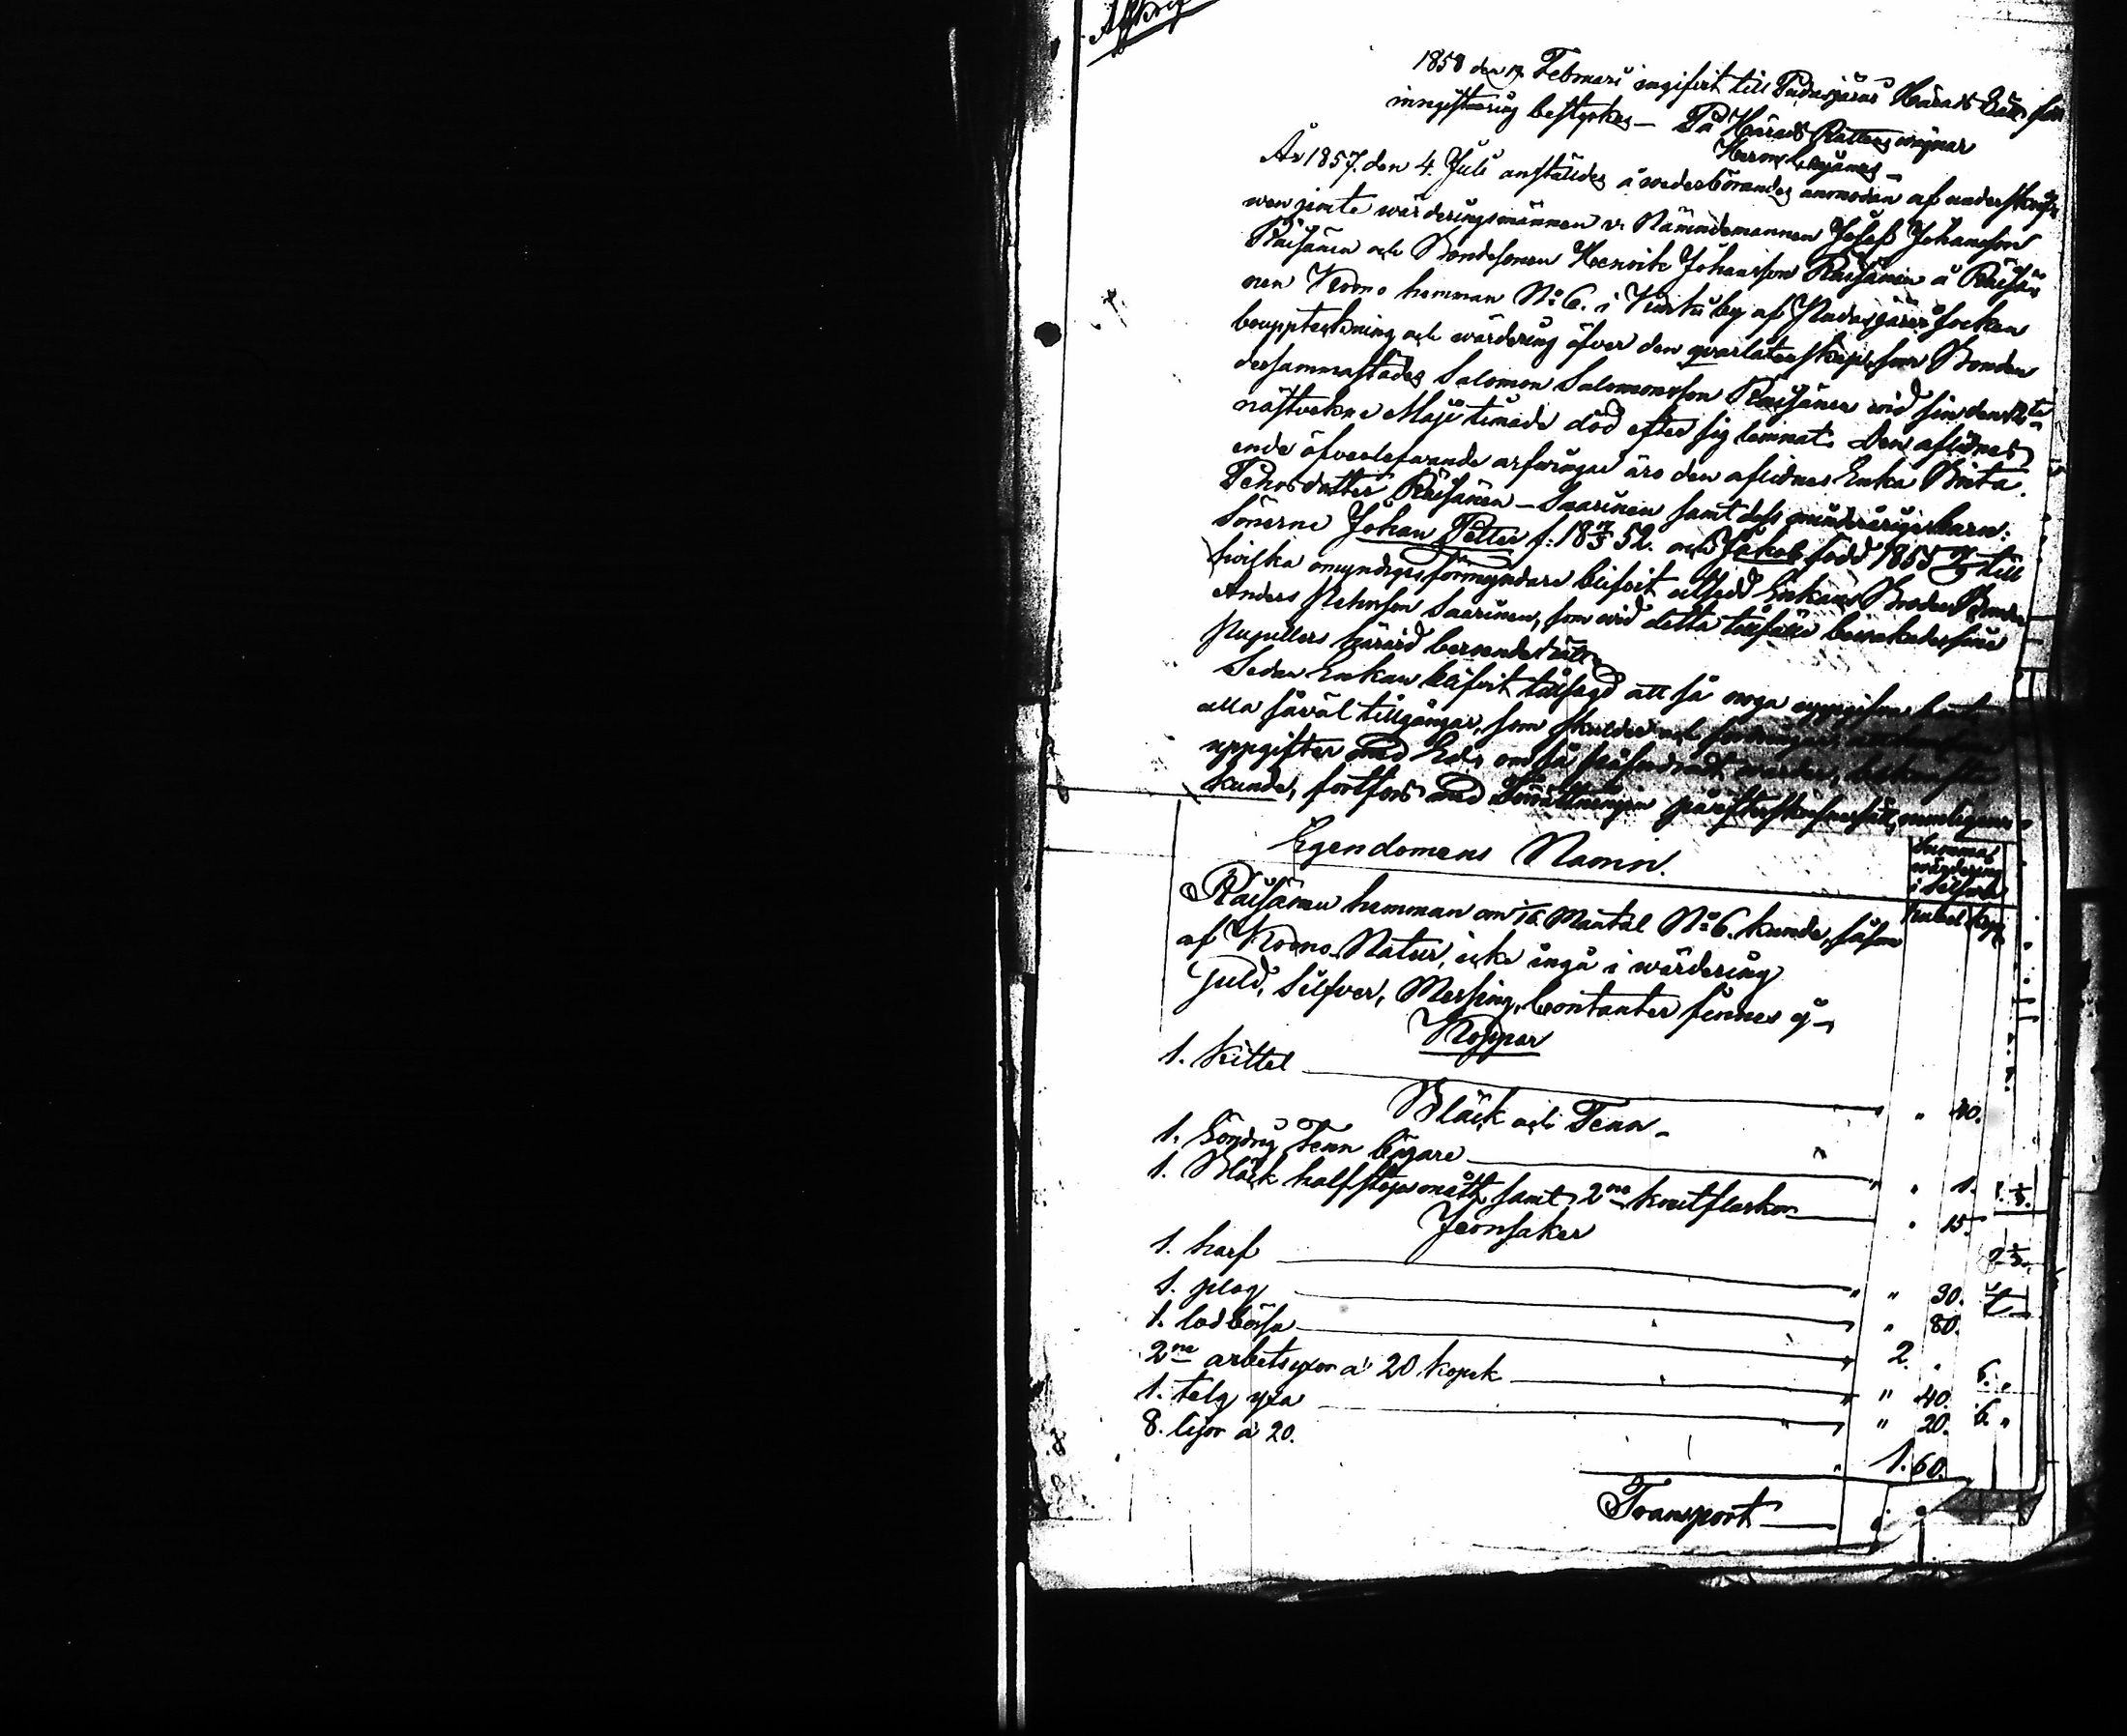 Afskrift
1858 den 17 Februari ingifvit till Pudasjärvi Härads Rätt för
inregistrering bestyrkes — På Härads Rättens vägnar
Herm.
År 1857. den 4. Juli anställdes å vederbörandes anmodan af underskrif-
wen jemte wärderingsmännen v. Nämndemannen Josef Johansson
Räisänen och Bondesonen Henrik Johansson Räisänen å Räisä-
nen Krono hemman No 6. i Kurki by af Pudasjärvi socken
bouppteckning och wärdering öfver den qvarlåtenskap, som Bonden
dersammastädes Salomon Salomonsson Räisänen wid sin den 12te
nästvekne Maji timade död efter sig lemnat. Den aflidnes
ende öfverlefvande arfvingar äro den aflidnes Enka Brita
Pehrsdotter Räisänen — Saarinen samt dess minderåriga barn:
Sönerne Johan Petter f: 18 52. och Jakob född 1855 till
hvilka omyndigas förmyndare blifvit utsedd Enkans Broder Bonden
Anders Pehrsson Saarinen, som wid detta tillfälle bevakade sine
Pupillers härvid beroende rätt.
Sedan Enkan blifvit tillsagd att så noga uppgifva boets
alla såväl tillgångar, som skulder och fordringar,
uppgifter med Ed, om så påfordradt warder, bekräfta
kunde, fortfors med Förrättningen på efterskrifne sätt, nemligen:
Egendomens Namn.
Summas
wärdering
i Silfver
Rubel Kop
Räisänen hemman om 1/16 Mantal No 6. kunde, såsom
af Krono Natur, icke ingå i wärdering
Guld, Silfver, Messing, Contanter finnes ej —
Koppar
1. Kittel — " " 20.
Bläck och Tenn —
1. Söndrig Tenn bägare — " " 1.
1. Bläck halfstops mått, samt 2ne krutflaskor — " 15.
Jernsaker
1. harf — " " 30.
1. plog — " " 80.
1. lodbössa — " 2. "
2ne arbetsyxor a' 20 kopek — " " 40.
1. telg yxa — " " 20.
8. lijor a' 20. " 1. 60.
Transport —